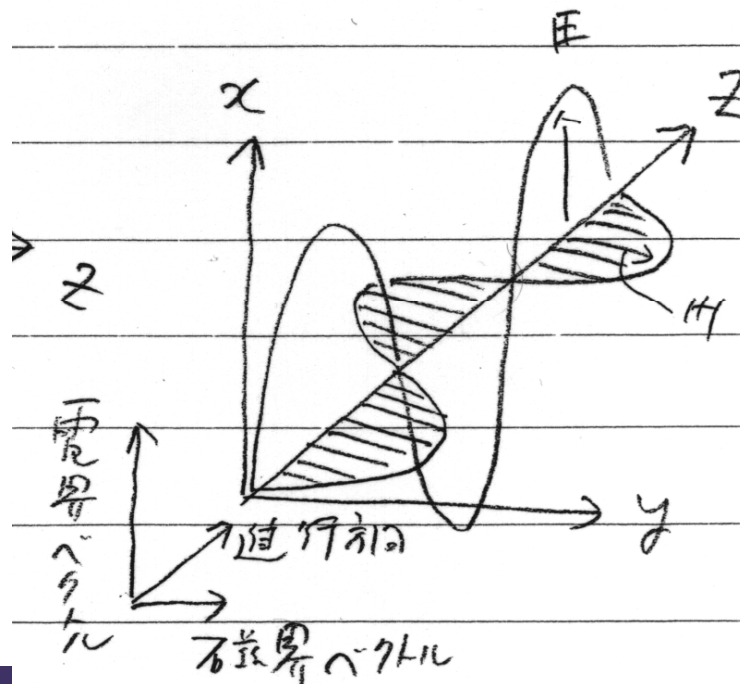 E
x
Z
Z
H
電界ベクトル
y
進行方向
磁界ベクトル